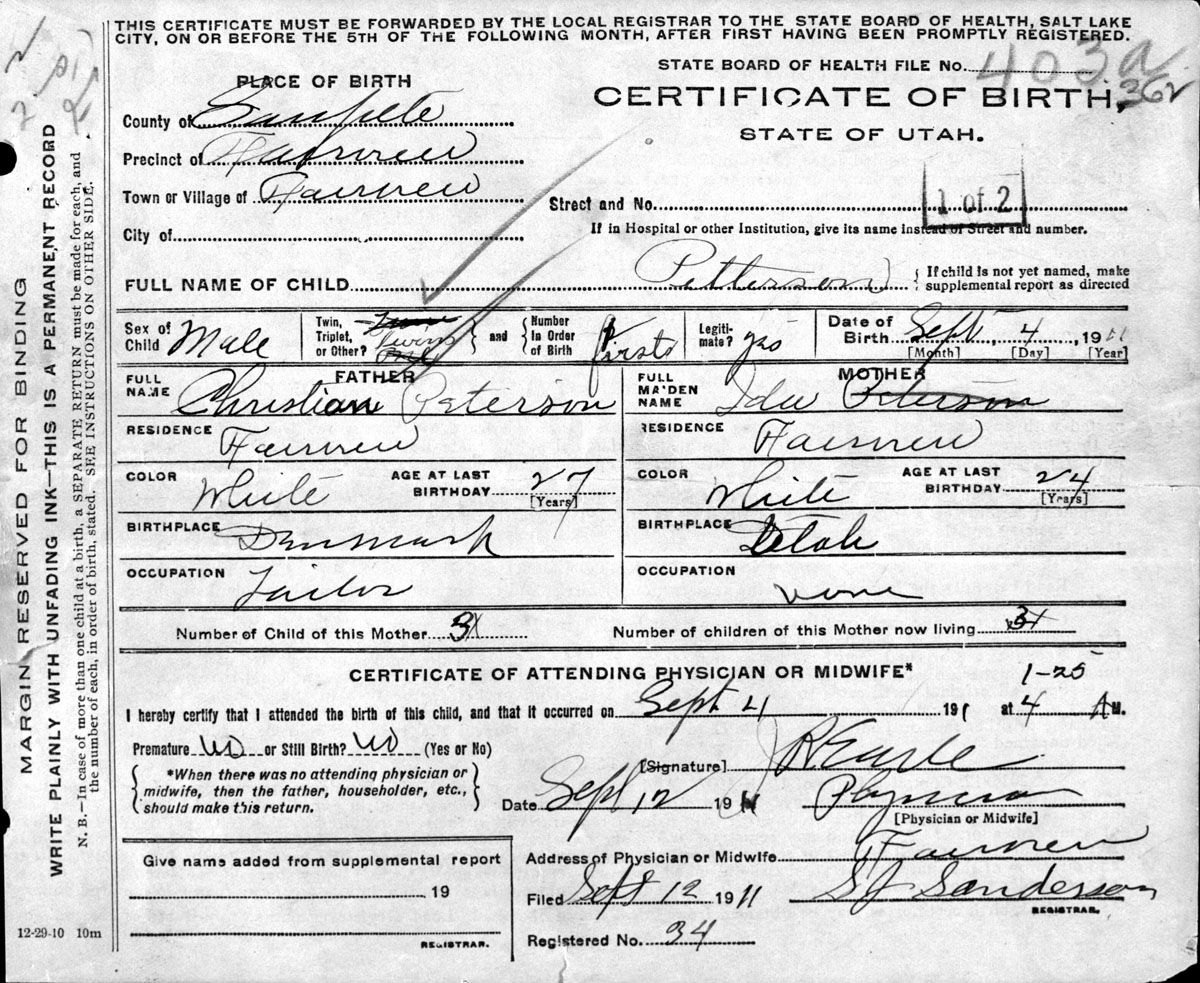 THIS CERTIFICATE MUST BE FORWARDED BY THE LOCAL REGISTRAR TO THE STATE BOARD OF HEALTH, SALT LAKE
CITY, ON OR BEFORE THE 5TH OF THE FOLLOWING MONTH, AFTER FIRST HAVING BEEN PROMPTLY REGISTERED.
STATE BOARD OF HEALTH FILE No. 403a
362
PLACE OF BIRTH
CERTIFICATE OF BIRTH,
STATE OF UTAH.
County of Sanpete
Precinct of Fairview
Town or Village of Fairview
Street and No.
1 of 2
City of
If in Hospital or other Institution, give its name instead of Street and number.
FULL NAME OF CHILD Petterson
If child is not yet named, make
supplemental report as directed
Sex of Child Male
Twin, Triplet, or Other? Twins
and
Number In Order of Birth first
Legiti-mate? yes
Date of Birth Sept 4, 1911
[Month] [Day] [Year]
FATHER
FULL NAME Christian Peterson
RESIDENCE Fairview
COLOR White
AGE AT LAST BIRTHDAY 27
[Years]
BIRTHPLACE Denmark
OCCUPATION Tailor
MOTHER
FULL MAIDEN NAME Ida Peterson
RESIDENCE Fairview
COLOR White
AGE AT LAST BIRTHDAY 24
[Years]
BIRTHPLACE Utah
OCCUPATION none
Number of Child of this Mother 3
Number of children of this Mother now living 3
CERTIFICATE OF ATTENDING PHYSICIAN OR MIDWIFE*
1-25
I hereby certify that I attended the birth of this child, and that it occurred on Sept 4 191 at 4 A M.
Premature no or Still Birth? no (Yes or No)
[Signature]
*When there was no attending physician or
midwife, then the father, householder, etc.,
should make this return.
Date Sept 12 1911
Physician
[Physician or Midwife]
Address of Physician or Midwife Fairview
Give name added from supplemental report
19
REGISTRAR.
Filed Sept 12 1911 SJ Sanderson
REGISTRAR.
Registered No. 34
12-29-10 10m
MARGIN RESERVED FOR BINDING
WRITE PLAINLY WITH UNFADING INK—THIS IS A PERMANENT RECORD
N. B.—In case of more than one child at a birth, a SEPARATE RETURN must be made for each, and
the number of each, in order of birth, stated. SEE INSTRUCTIONS ON OTHER SIDE.